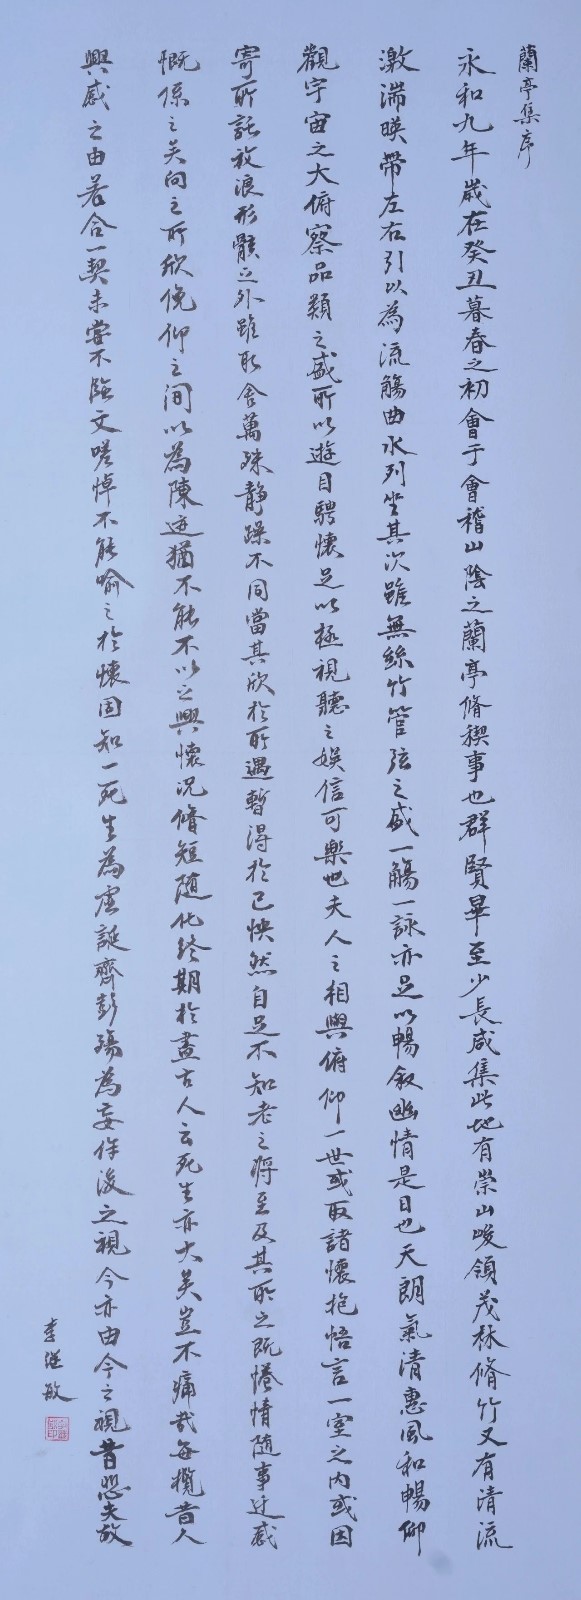 蘭亭集序
永和九年歲在癸丑暮春之初會于會稽山陰之蘭亭脩稧事也群賢畢至少長咸集此地有崇山峻領茂林脩竹又有清流
激湍暎帶左右引以為流觴曲水列坐其次雖無絲竹管弦之盛一觴一詠亦足以暢敘幽情是日也天朗氣清惠風和暢仰
觀宇宙之大俯察品類之盛所以遊目騁懷足以極視聽之娛信可樂也夫人之相與俯仰一世或取諸懷抱悟言一室之內或因
寄所託放浪形骸之外雖取舍萬殊靜躁不同當其欣於所遇暫得於己怏然自足不知老之將至及其所之既惓情隨事遷感
慨係之矣向之所欣俛仰之間以為陳迹猶不能不以之興懷況脩短隨化終期於盡古人云死生亦大矣豈不痛哉每攬昔人
興感之由若合一契未嘗不臨文嗟悼不能喻之於懷固知一死生為虛誕齊彭殤為妄作後之視今亦由今之視昔悲夫故
李繼敏